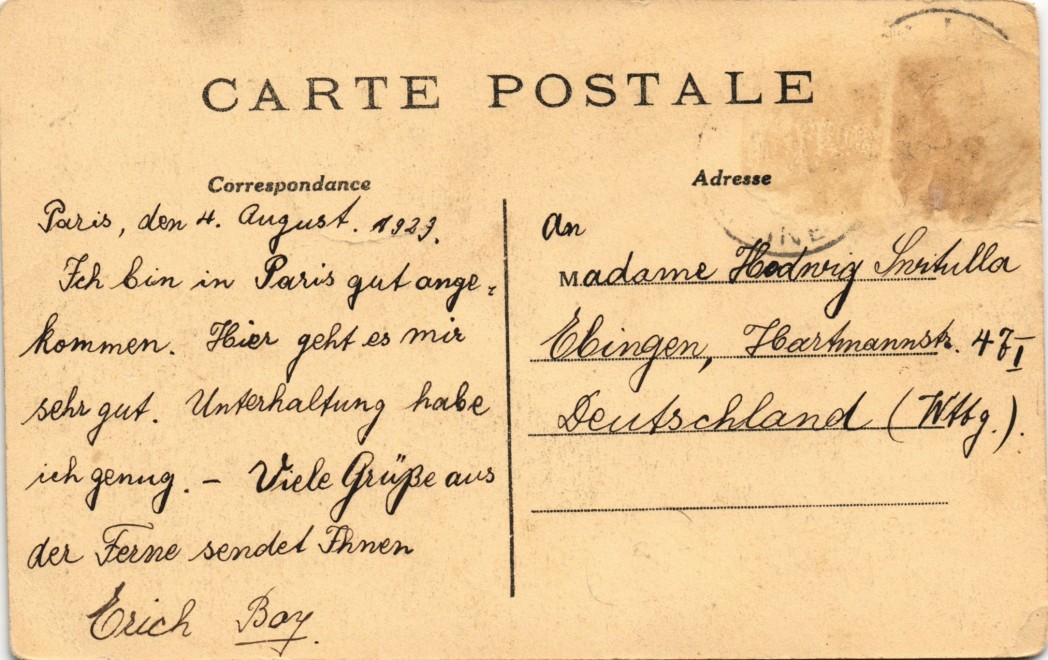 CARTE POSTALE
Correspondance
Paris, den 4. August. 1929.
Ich bin in Paris gut ange-
kommen. Hier geht es mir
sehr gut. Unterhaltung habe
ich genug. – Viele Grüße aus
der Ferne sendet Ihnen
Erich Boy.
Adresse
An
Madame Hedwig
Ebingen, Hartmannstr. 47 I
Deutschland (Wttbg.).